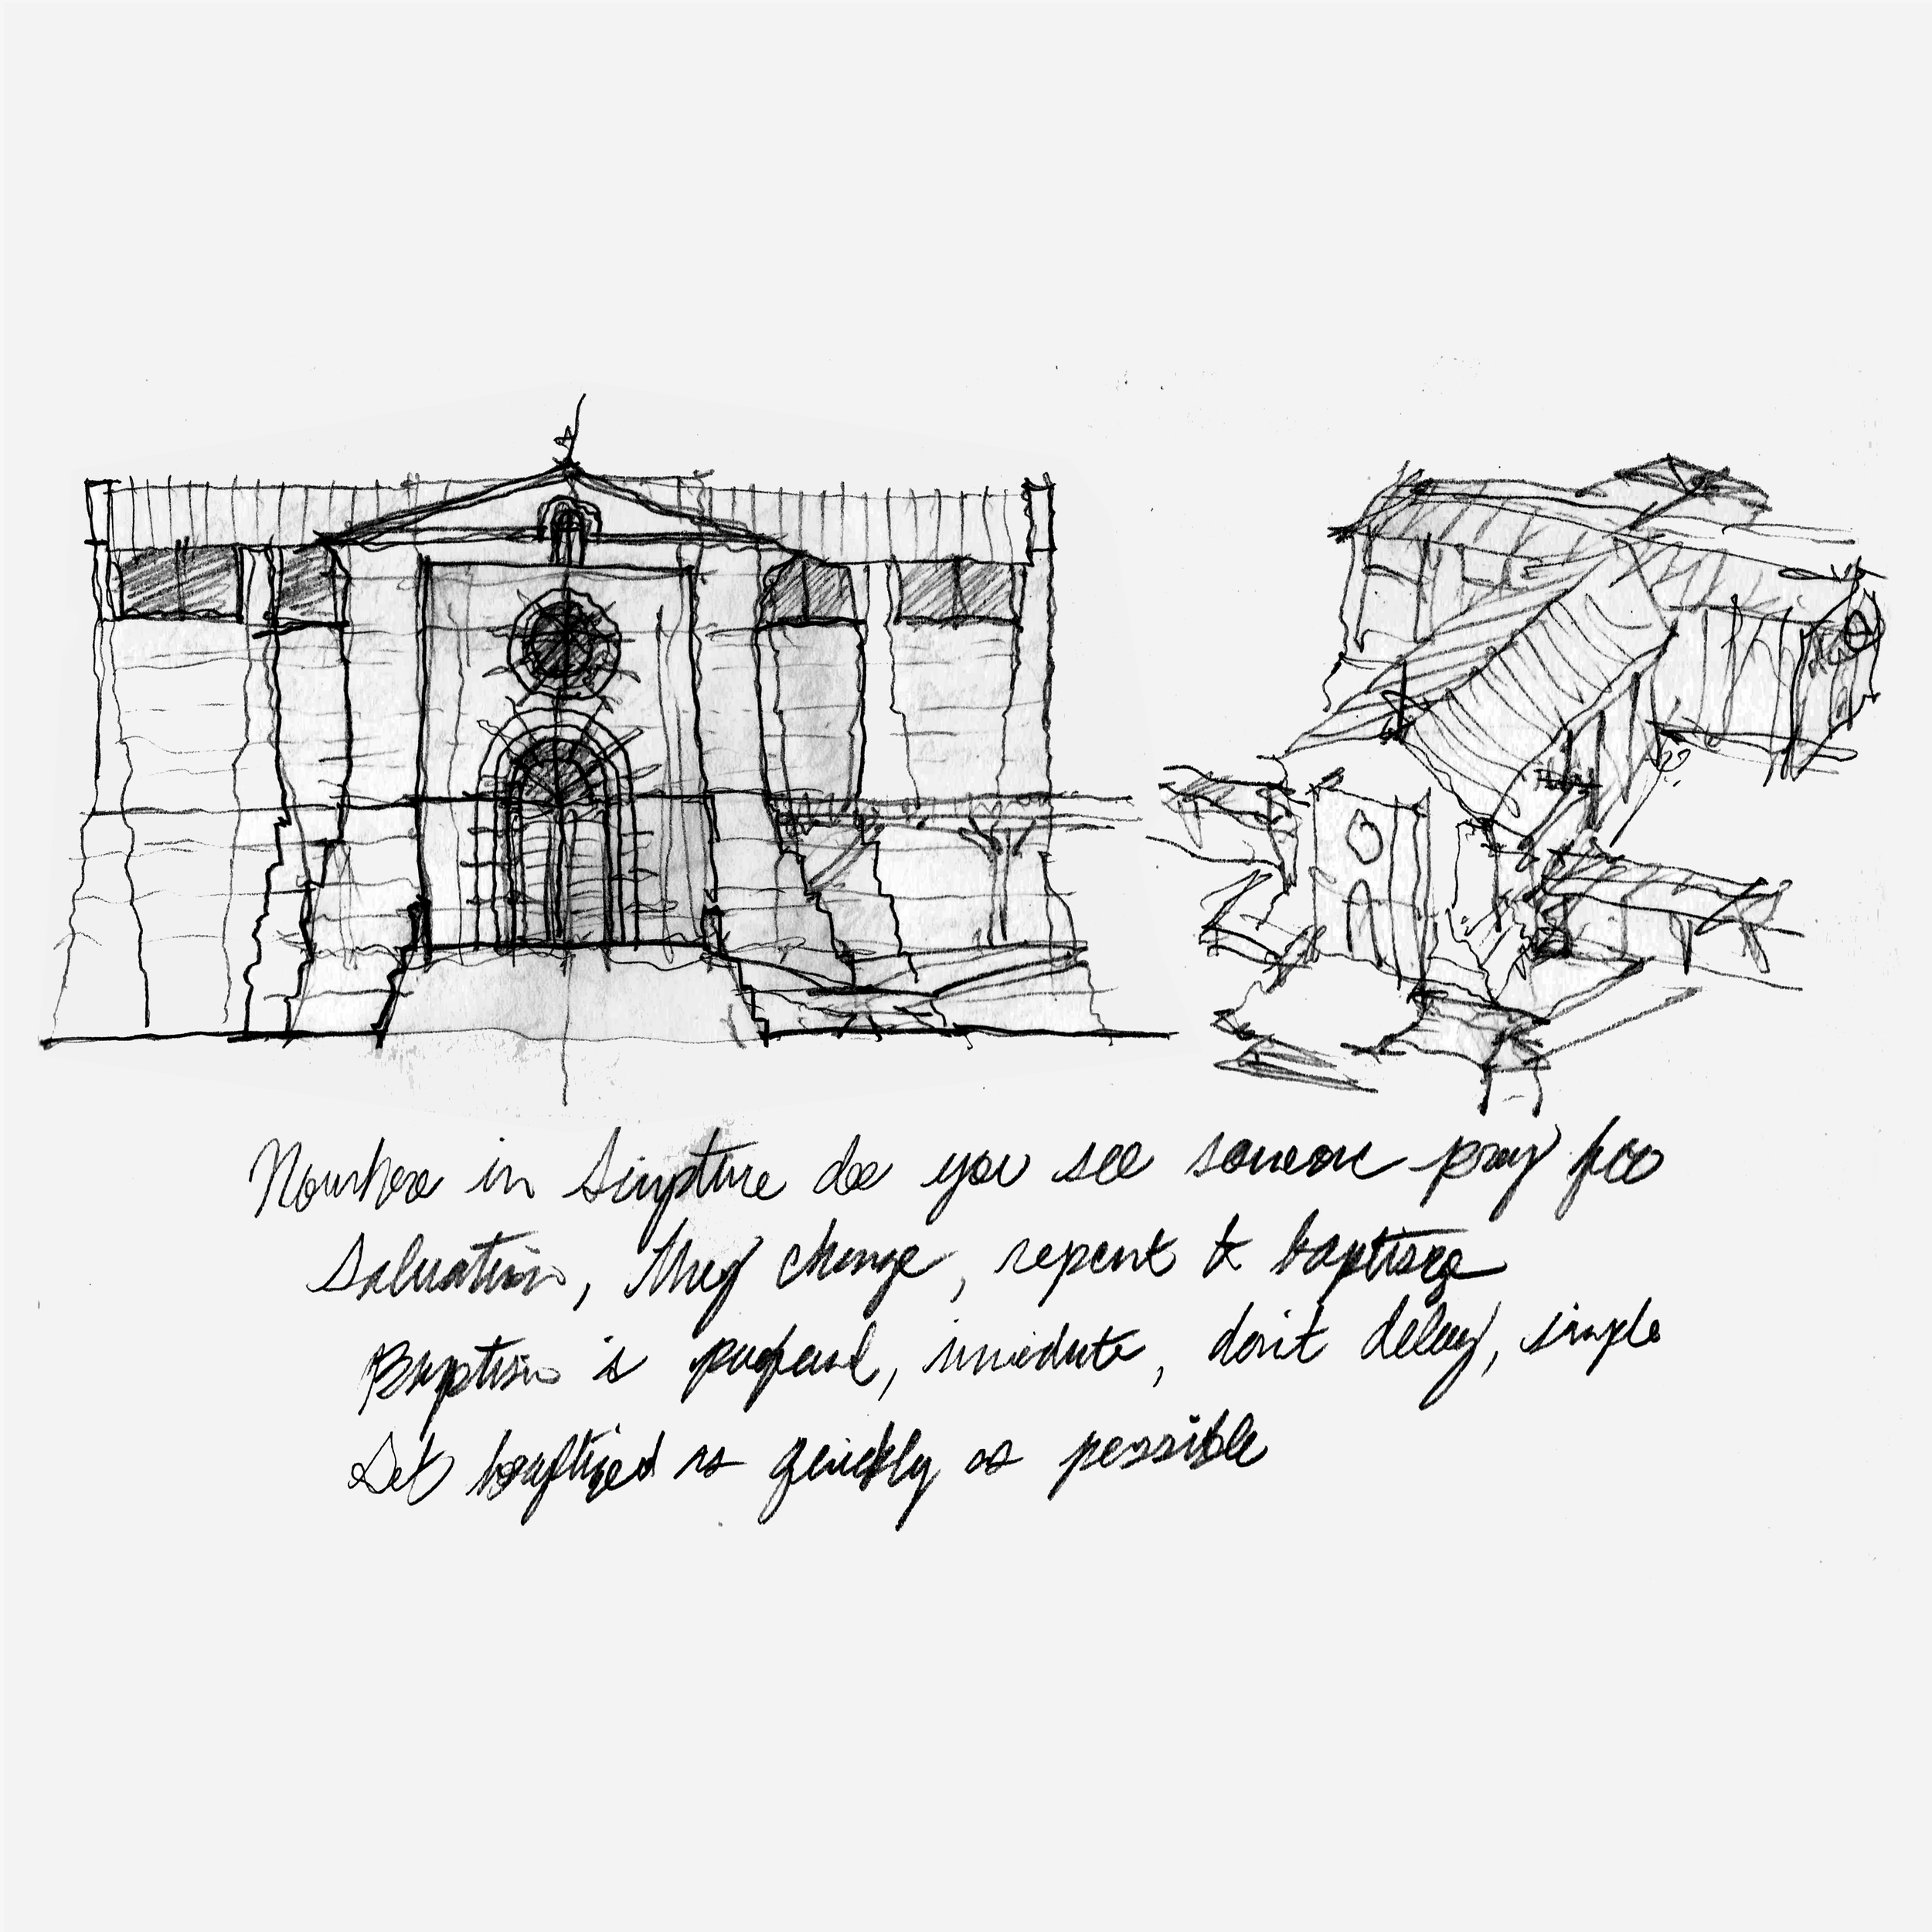 Nowhere in Scripture do you see someone pray for
Salvation, they change, repent & baptize
Baptism is profound, immediate, don't delay, simple
Get baptized as quickly as possible